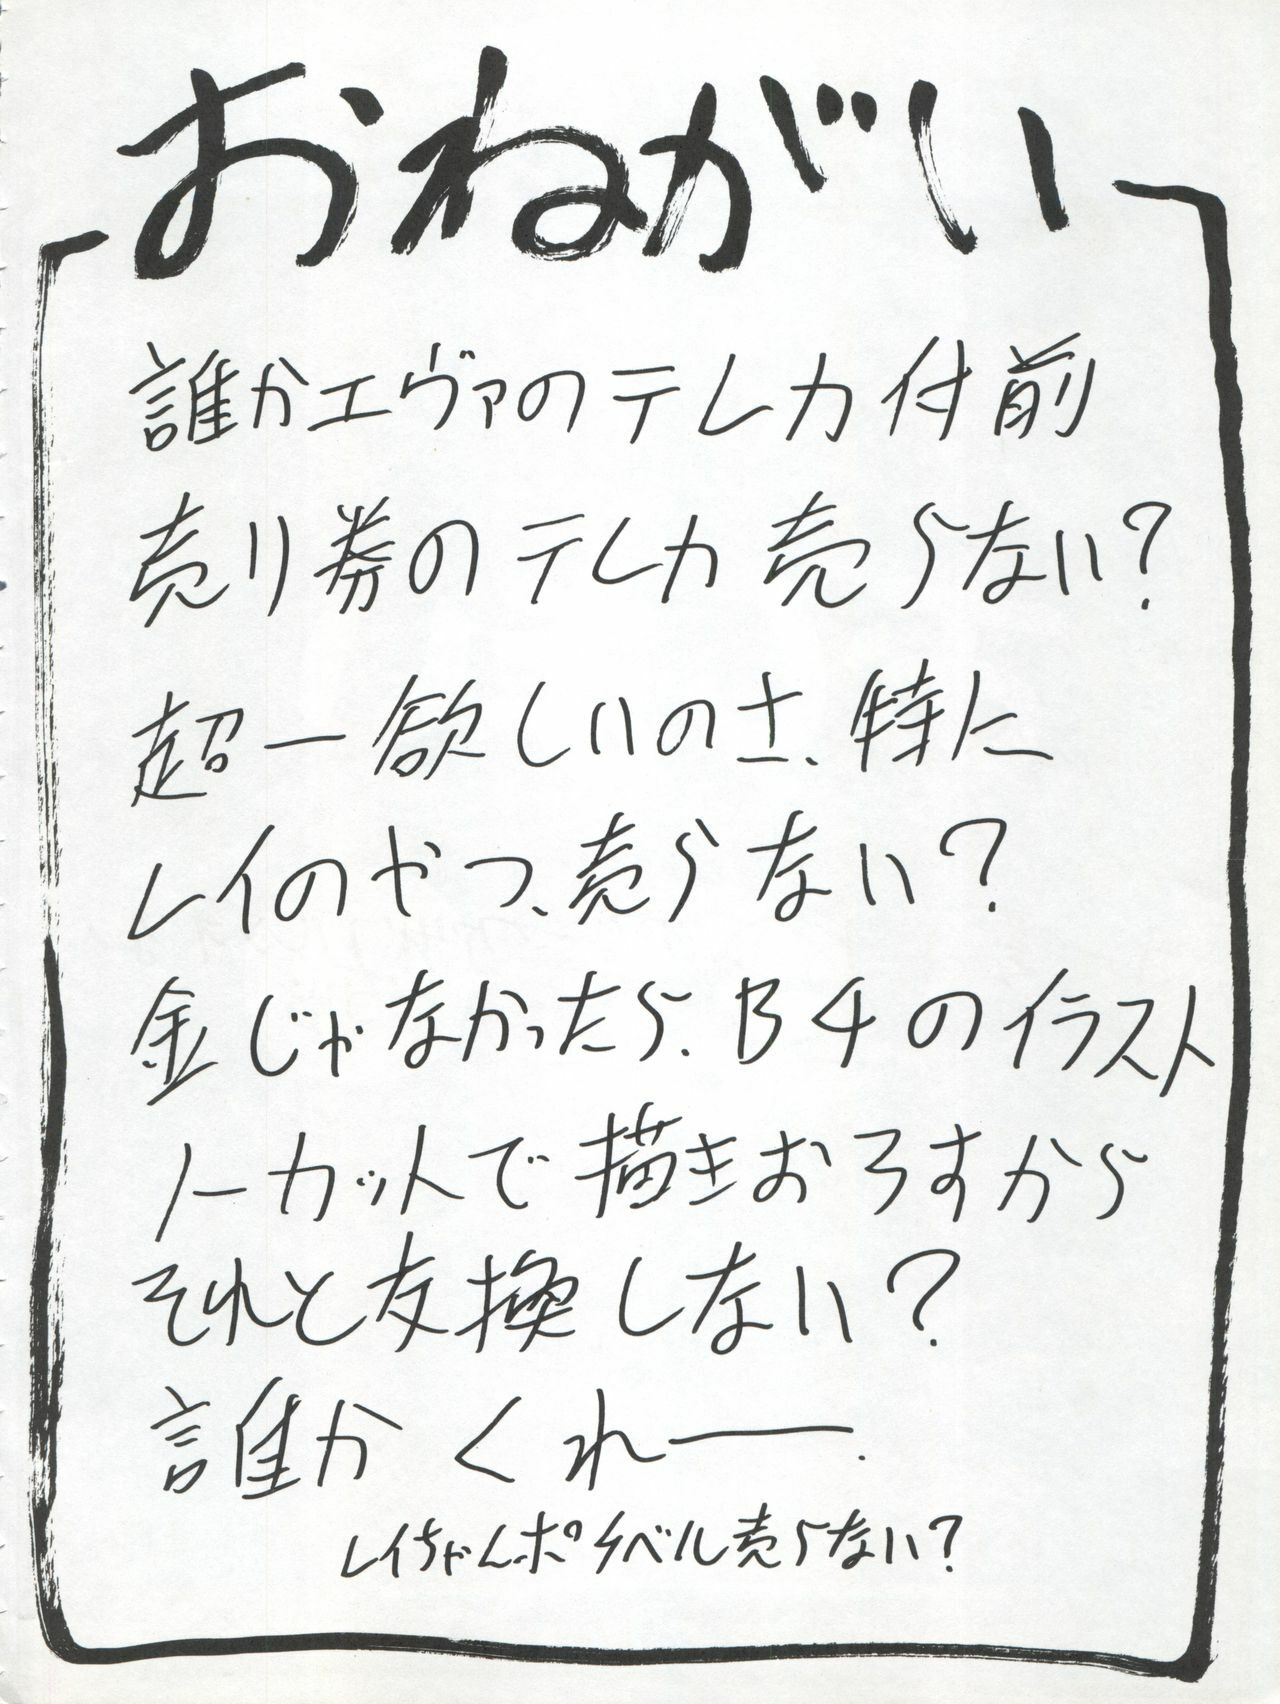 おねがい
誰かエヴァのテレカ付前
売り券のテレカ売らない?
超一欲しいのさ、特に
レイのやつ、売らない?
金じゃなかったら、B4のイラスト
ノーカットで描きおろすから
それと交換しない?
誰かくれー.
レイちゃんポケベル売らない?